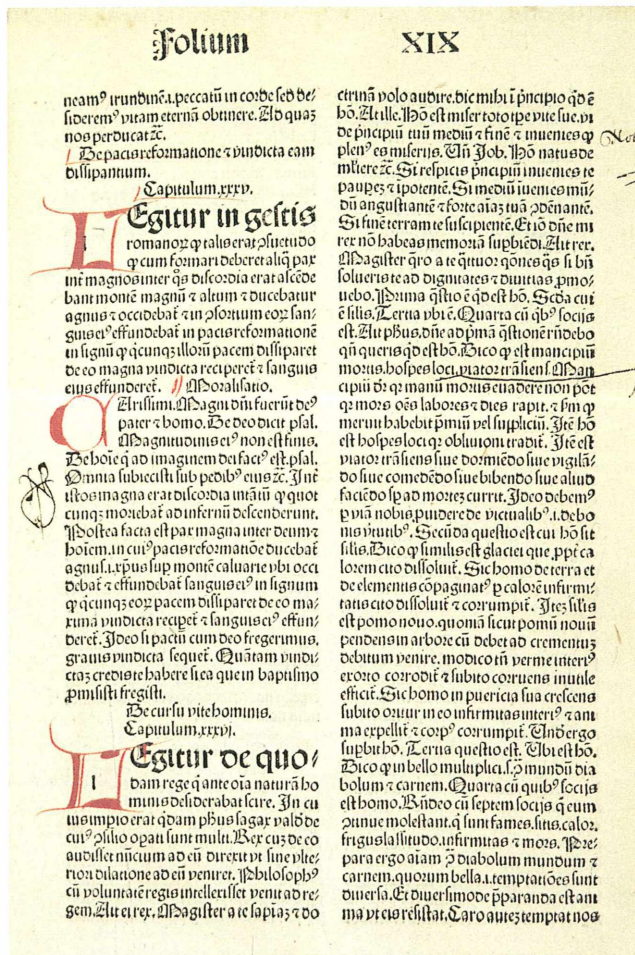 Folium XIX
neamꝰ irundinē.i.peccatū in corde sed de⸗
sideremꝰ vitam eternā obtinere. Ad quaꝫ
nos perducat ⁊c̄.
De pacis reformatione ⁊ vindicta eam
dissipantium.
Capitulum.xxxv.
LEgitur in gestis
romanoꝝ ꝙ talis erat ꝯsuetudo
ꝙ cum formari deberet aliq̄ pax
int̄ magnos inter q̄s discordia erat ascēde
bant montē magnū ⁊ altum ⁊ ducebatur
agnus ⁊ occidebat̄ ⁊ in ꝯsortium eoꝝ san⸗
guis eiꝰ effundebat̄ in pacis reformationē
in signū ꝙ q̇cunqꝫ illorū pacem dissiparet
de eo magna vindicta reciperet̄ ⁊ sanguis
eius effunderet̄. Moralisatio.
CArissimi. Magni dn̄i fuerūt deꝰ
pater ⁊ homo. De deo dicit psal.
Magnitudinis eiꝰ non est finis.
De hoīe q̇ ad imaginem dei factꝰ est.psal.
Omnia subiecisti sub pedibꝰ eius ⁊c̄. Int̄
istos magna erat discordia intātū ꝙ quot
cunqꝫ moriebāt̄ ad infernū descenderunt.
Postea facta est pax magna inter deum ⁊
hoīem. in cuiꝰ pacis reformatiōe ducebat̄
agnus.i.xp̄us sup̄ montē caluarie vbi occi
debat̄ ⁊ effundebat̄ sanguis eiꝰ in signum
ꝙ q̇cunqꝫ eoꝝ pacem dissiparet de eo ma⸗
xima vindicta recip̄et̄ ⁊ sanguis eiꝰ effun⸗
deret̄. Ideo si pactū cum deo fregerimus,
grauis vindicta sequet̄. Quātam vindi⸗
ctaꝫ credis te habere si ea que in baptismo
ꝓmisisti fregisti.
De cursu vite hominis.
Capitulum.xxxvi.
LEgitur de quo⸗
dam rege q̇ ante oīa naturā ho
minis desiderabat scire. In cu
ius impio erat q̇dam ph̄us sagax valde de
cuiꝰ ꝯsilio oꝑati sunt multi. Rex cuꝫ de eo
audisset nūcium ad eū direxit vt sine vlte⸗
riori dilatione ad eū veniret. Philosophꝰ
cū voluntatē regis intellexisset venit ad re⸗
gem. Ait ei rex. Magister a te sapīaꝫ ⁊ do
ctrinā volo audire. dic mihi ī p̄ncipio q̇d ē
hō. At ille. Hō est miser toto tꝑe vite sue. vi
de p̄ncipiū tuū mediū ⁊ finē ⁊ inuenies ꝙ
plenꝰ es miserijs. Uñ Job. Hō natus de
mĺiere ⁊c̄. Si respicis p̄ncipiū inuenies te
pauꝑeꝫ ⁊ īpotentē. Si mediū īuenies mū⸗
dū angustiantē ⁊ forte aīaꝫ tuā ꝯdēnantē.
Si finē terram te suscipientē. Et iō dn̄e mi
rex nō habeas memoriā suꝑbiēdi. Ait rex.
Magister q̄ro a te q̄ttuor q̄ōnes q̄s si bn̄
solueris te ad dignitates ⁊ diuitias ꝓmo⸗
uebo. Prima q̄stio ē q̇d est hō. Scd̄a cui
ē silis. Tertia vbi ē. Quarta cū qb̄ꝰ socijs
est. Ait ph̄us, dn̄e ad p̄mā q̄stionē rn̄debo
qn̄ queris q̇d est hō. Dico ꝙ est mancipiū
mortis. hospes loci, viator trāsiens. Man
cipiū dr̄ qr̄ manū mortis euadere non pōt
qr̄ mors oēs labores ⁊ dies rapit. ⁊ ẜm ꝙ
meruit habebit p̄miū vel suppliciū. Itē hō
est hospes loci qr̄ obliuioni tradit̄. Itē est
viator trāsiens siue dormiēdo siue vigilā⸗
do siue comedēdo siue bibendo siue aliud
faciēdo sꝑ ad morteꝫ currit. Ideo debemꝰ
ꝑ viā nobis ꝓuidere de victualibꝰ.i.de bo
nis v̄tutibꝰ. Secūda questio est cui hō sit
silis. Dico ꝙ similis est glaciei que ꝓpt̄ ca
lorem cito dissoluit̄. Sic homo de terra et
de elementis cōpaginatꝰ ꝑ calorē infirmi⸗
tatis cito dissoluit̄ ⁊ corrumpit̄. Iteꝫ silis
est pomo nouo. quoniā sicut pomū nouū
pendens in arbore cū debet ad crementuꝫ
debitum venire. modico tn̄ verme interiꝰ
exorto corrodit̄ ⁊ subito corruens inutile
efficit̄. Sic homo in puericia sua crescens
subito oritur in eo infirmitas interiꝰ ⁊ ani
ma expellit̄ ⁊ corpꝰ corrumpit̄. Uñ ergo
suꝑbit hō. Tertia questio est. Ubi est hō.
Dico ꝙ in bello multiplici.s.ꝯ̄ mundū dia
bolum ⁊ carnem. Quarta cū quibꝰ socijs
est homo. Rn̄deo cū septem socijs q̇ eum
ꝯtinue molestant. q̇ sunt fames. sitis. calor.
frigus lassitudo. infirmitas ⁊ mors. Pre⸗
para ergo aīam ꝯ̄ diabolum mundum ⁊
carnem. quorum bella.i.temptatiōes sunt
diuersa. Et diuersimode p̄paranda est ani
ma vt eis resistat. Caro auteꝫ temptat nos